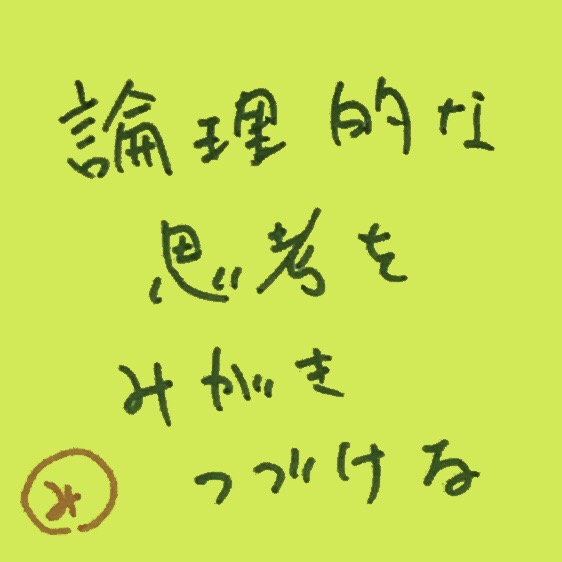 論理的な
思考を
みがき
つづける